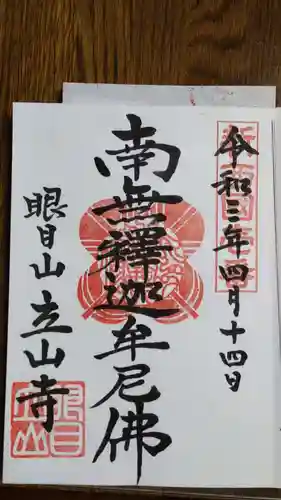 令和三年四月十四日
南無釋迦牟尼佛
眼目山立山寺